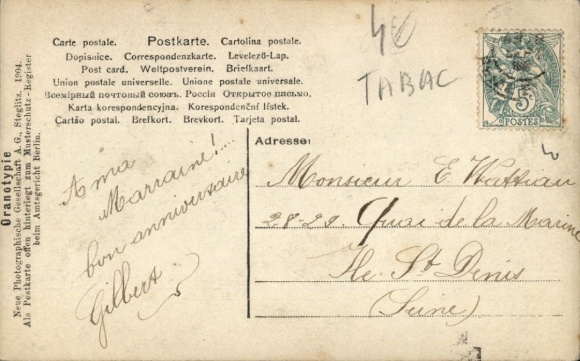 Carte postale. Postkarte. Cartolina postale.
Dopisnice. Correspondenzkarte. Levelező-Lap.
Post card. Weltpostverein. Briefkaart.
Union postale universelle. Unione postale universale.
Всемірный почтовый союзъ. Россія Открытое письмо.
Karta korespondencyjna. Korespondenční lístek.
Cartão postal. Brefkort. Brevkort. Tarjeta postal.
40
TABAC
5
POSTES
Oranotypie
Neue Photographische Gesellschaft A.G., Steglitz. 1904.
Als Postkarte offen hinterlegt zum Musterschutz-Register
beim Amtsgericht Berlin.
A ma
Marraine!....
bon anniversaire
Gilbert
Adresse:
Monsieur E
28-29 Quai de la Marine
Ile St Denis
(Seine)